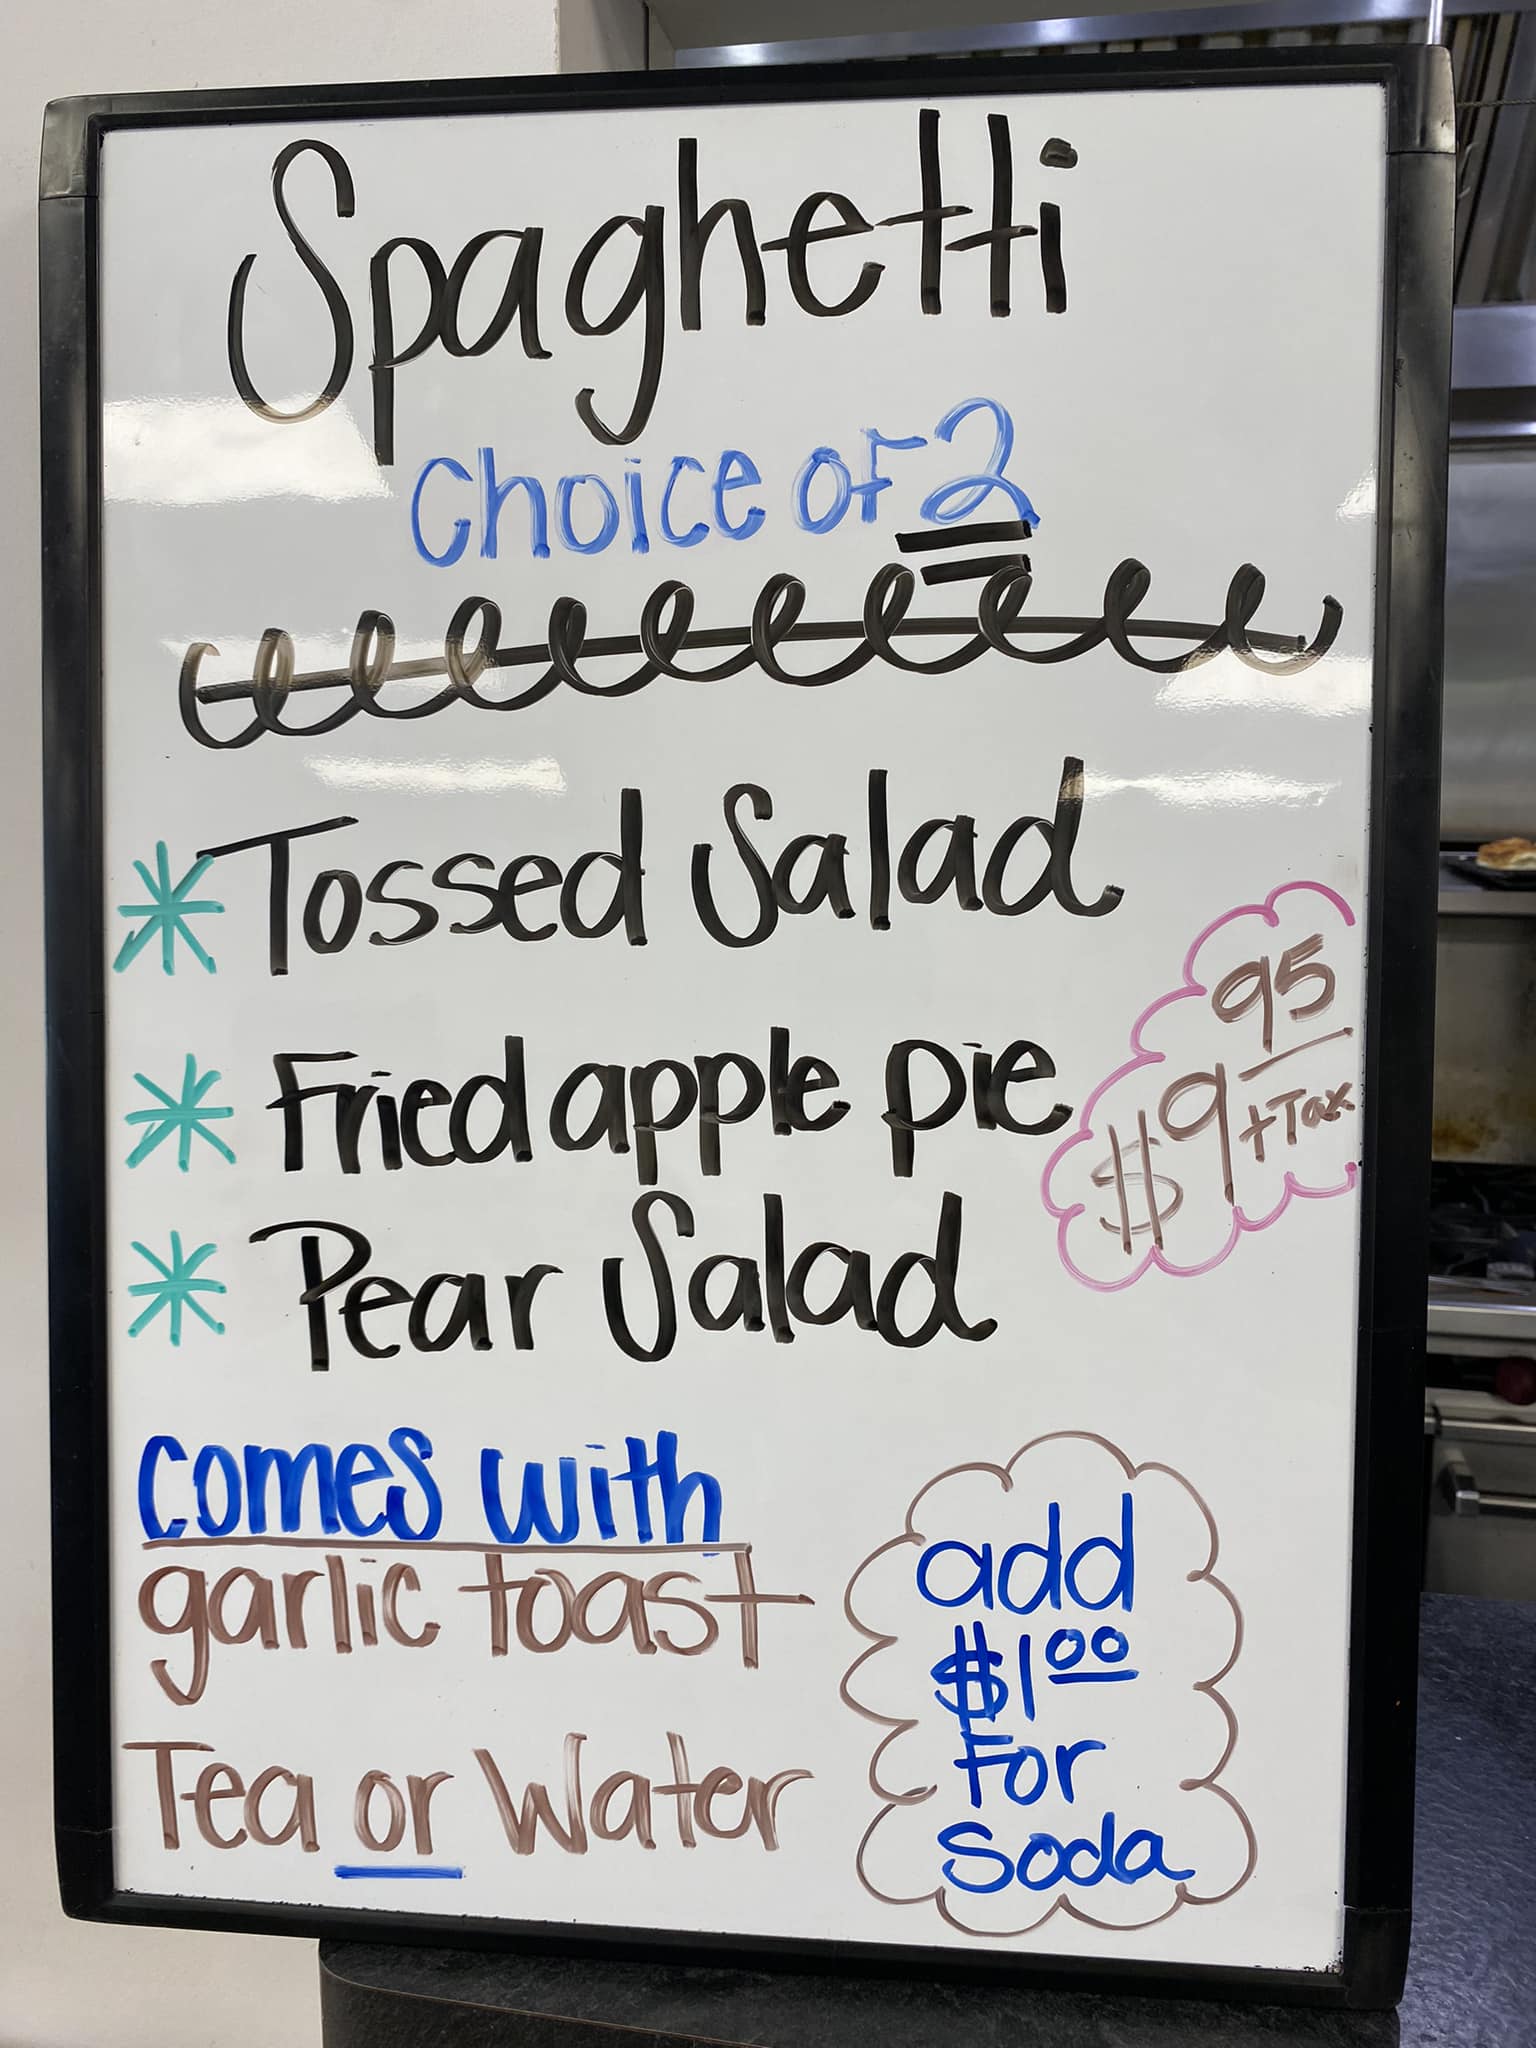 Spaghetti
Choice of 2
* Tossed Salad
* Fried apple pie
* Pear Salad
$9 95 + Tax
Comes with
garlic toast
Tea or Water
add
$1 00
For
Soda